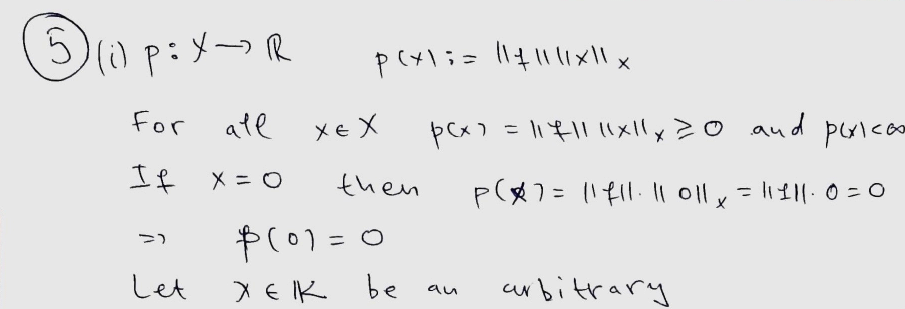 ⑤ (i) p: X → ℝ p(x) := ||f|| ||x||ₓ
For all x ∈ X p(x) = ||f|| ||x||ₓ ≥ 0 and p(x) < ∞
If x = 0 then p(x) = ||f|| · ||0||ₓ = ||f|| · 0 = 0
=> p(0) = 0
Let x ∈ 𝕂 be an arbitrary